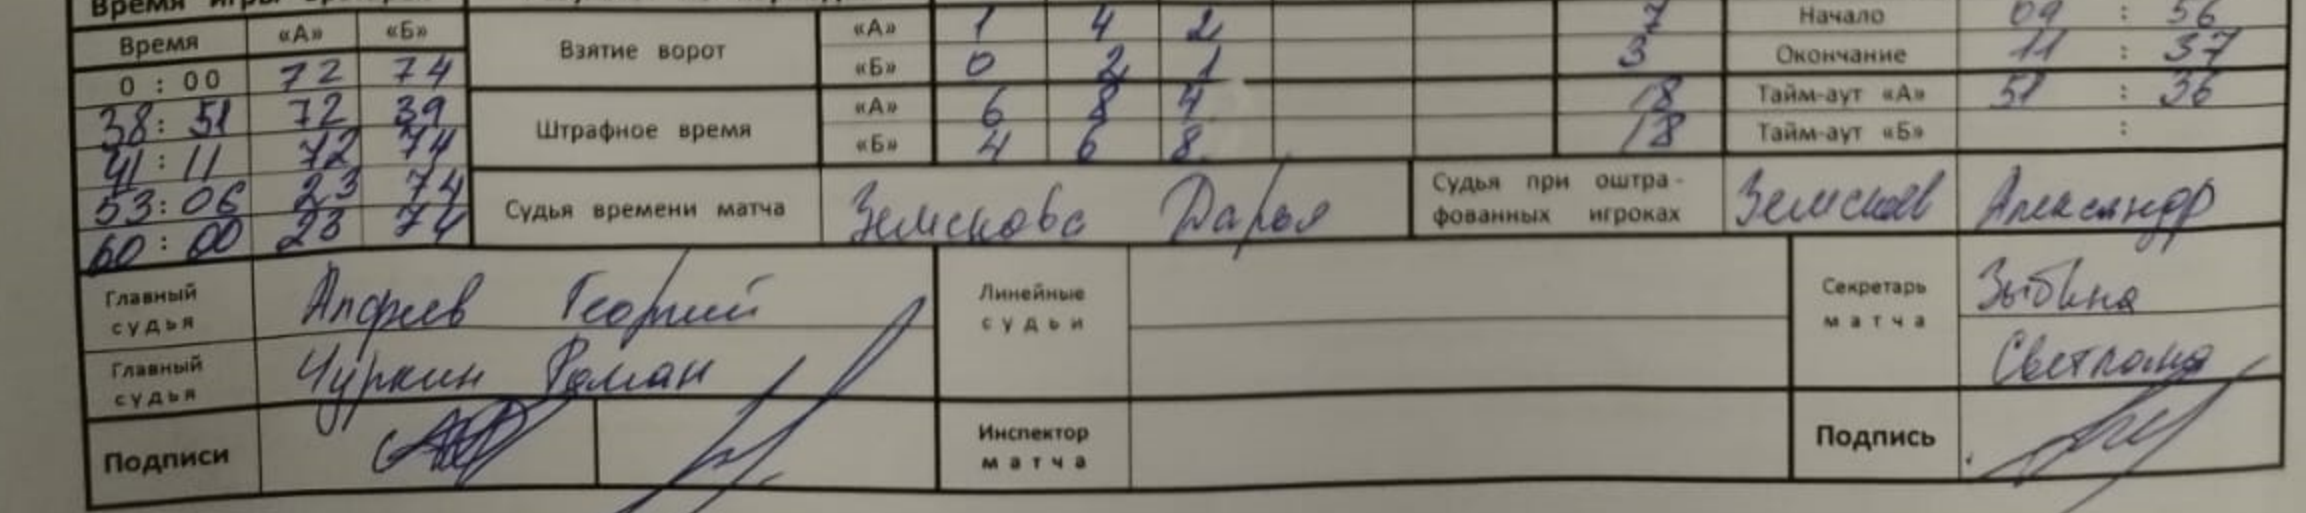 Время игры
Время «А» «Б»
0 : 00 72 74
38 : 51 72 39
41 : 11 72 74
53 : 06 23 74
60 : 00 23 74
Взятие ворот
«А» 1 4 2 7
«Б» 0 2 1 3
Штрафное время
«А» 6 8 4 18
«Б» 4 6 8 18
Начало 09 : 56
Окончание 11 : 37
Тайм-аут «А» 51 : 36
Тайм-аут «Б» :
Судья времени матча Земскова Дарья
Судья при оштра-
фованных игроках
Земсков Александр
Главный
судья
Георгий
Главный
судья
Чуркин Роман
Линейные
судьи
Секретарь
матча
Зыбина
Светлана
Подписи
Инспектор
матча
Подпись